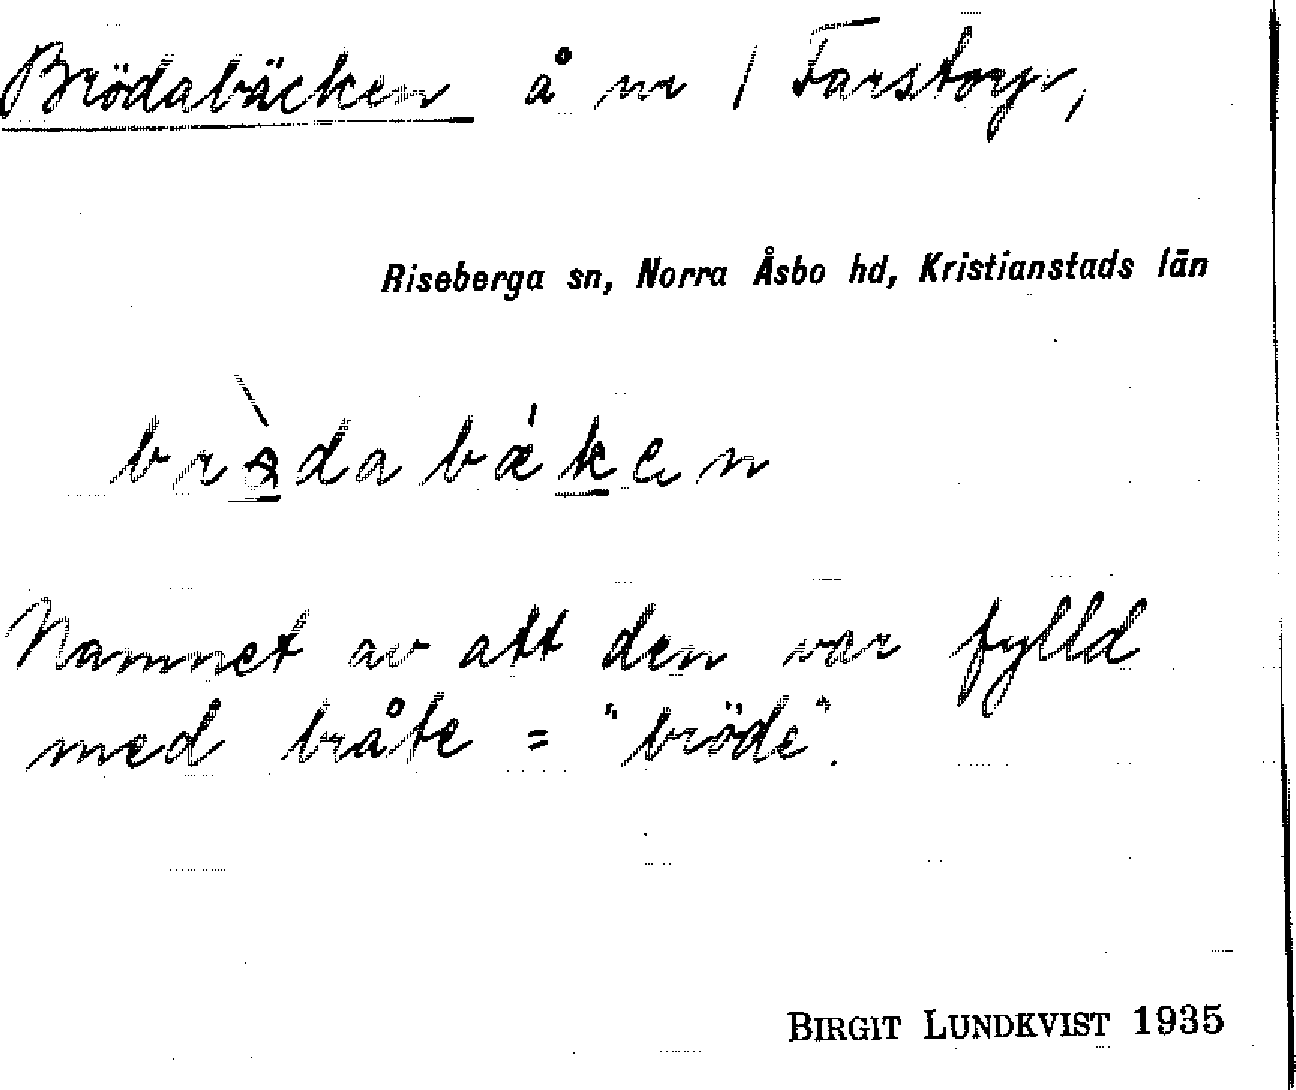 Brödabäcken å nr 1 Farstorp,
Riseberga sn, Norra Åsbo hd, Kristianstads län
brödabæken
Namnet av att den var fylld
med bråte = "bröde".
BIRGIT LUNDKVIST 1935